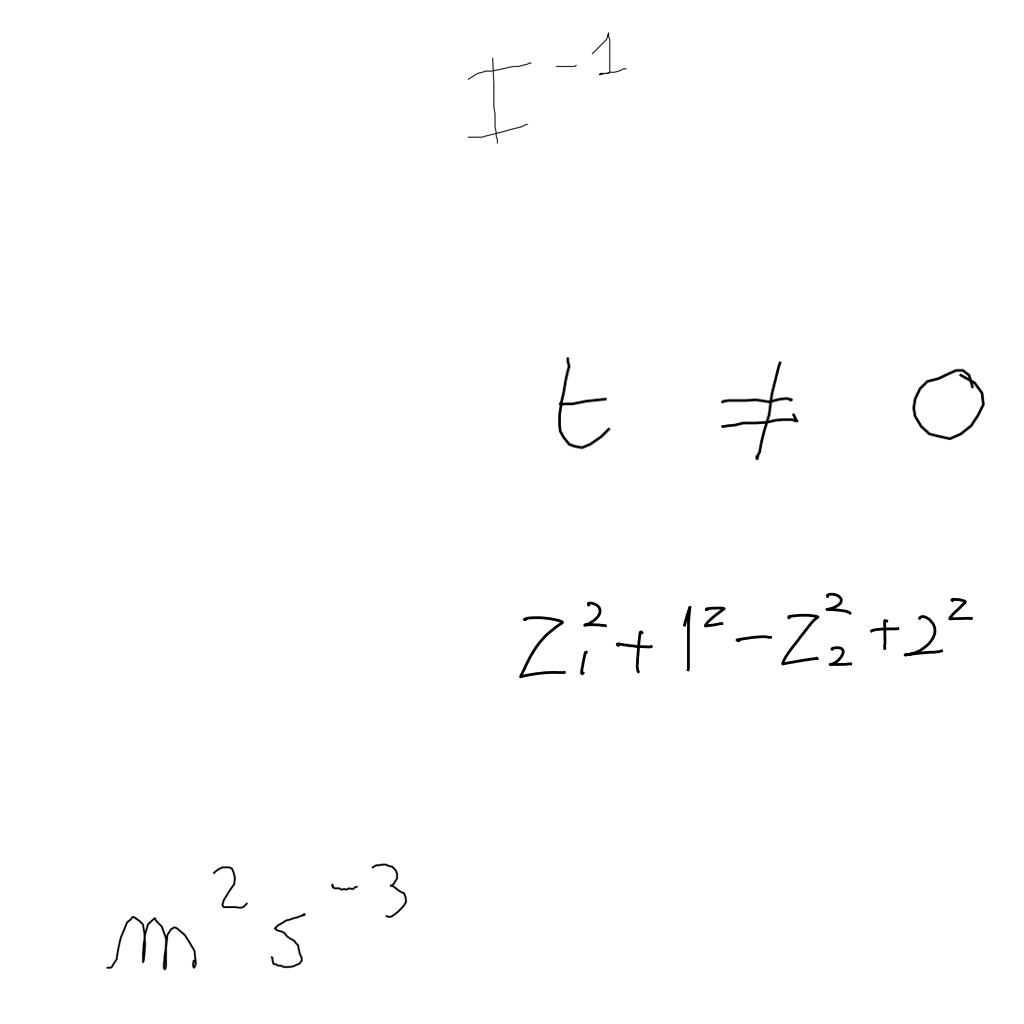 I⁻¹
t ≠ 0
z₁² + 1² - z₂² + 2²
m² s⁻³